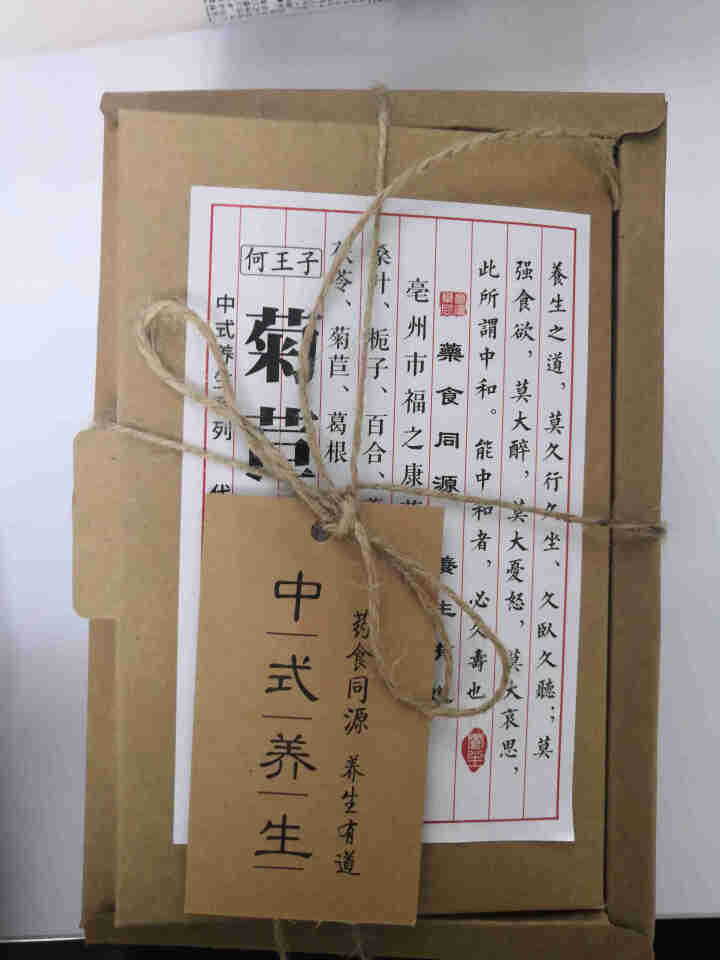 養生之道，莫久行久坐、久臥久聽；莫
强食欲，莫大醉，莫大憂怒，莫大哀思，
此所謂中和。能中和者，必久壽也
藥食同源
養生
亳州市福之康
桑叶、栀子、百合、
茯苓、菊苣、葛根
何王子
菊苣
中式养生系列
药食同源 养生有道
中式养生